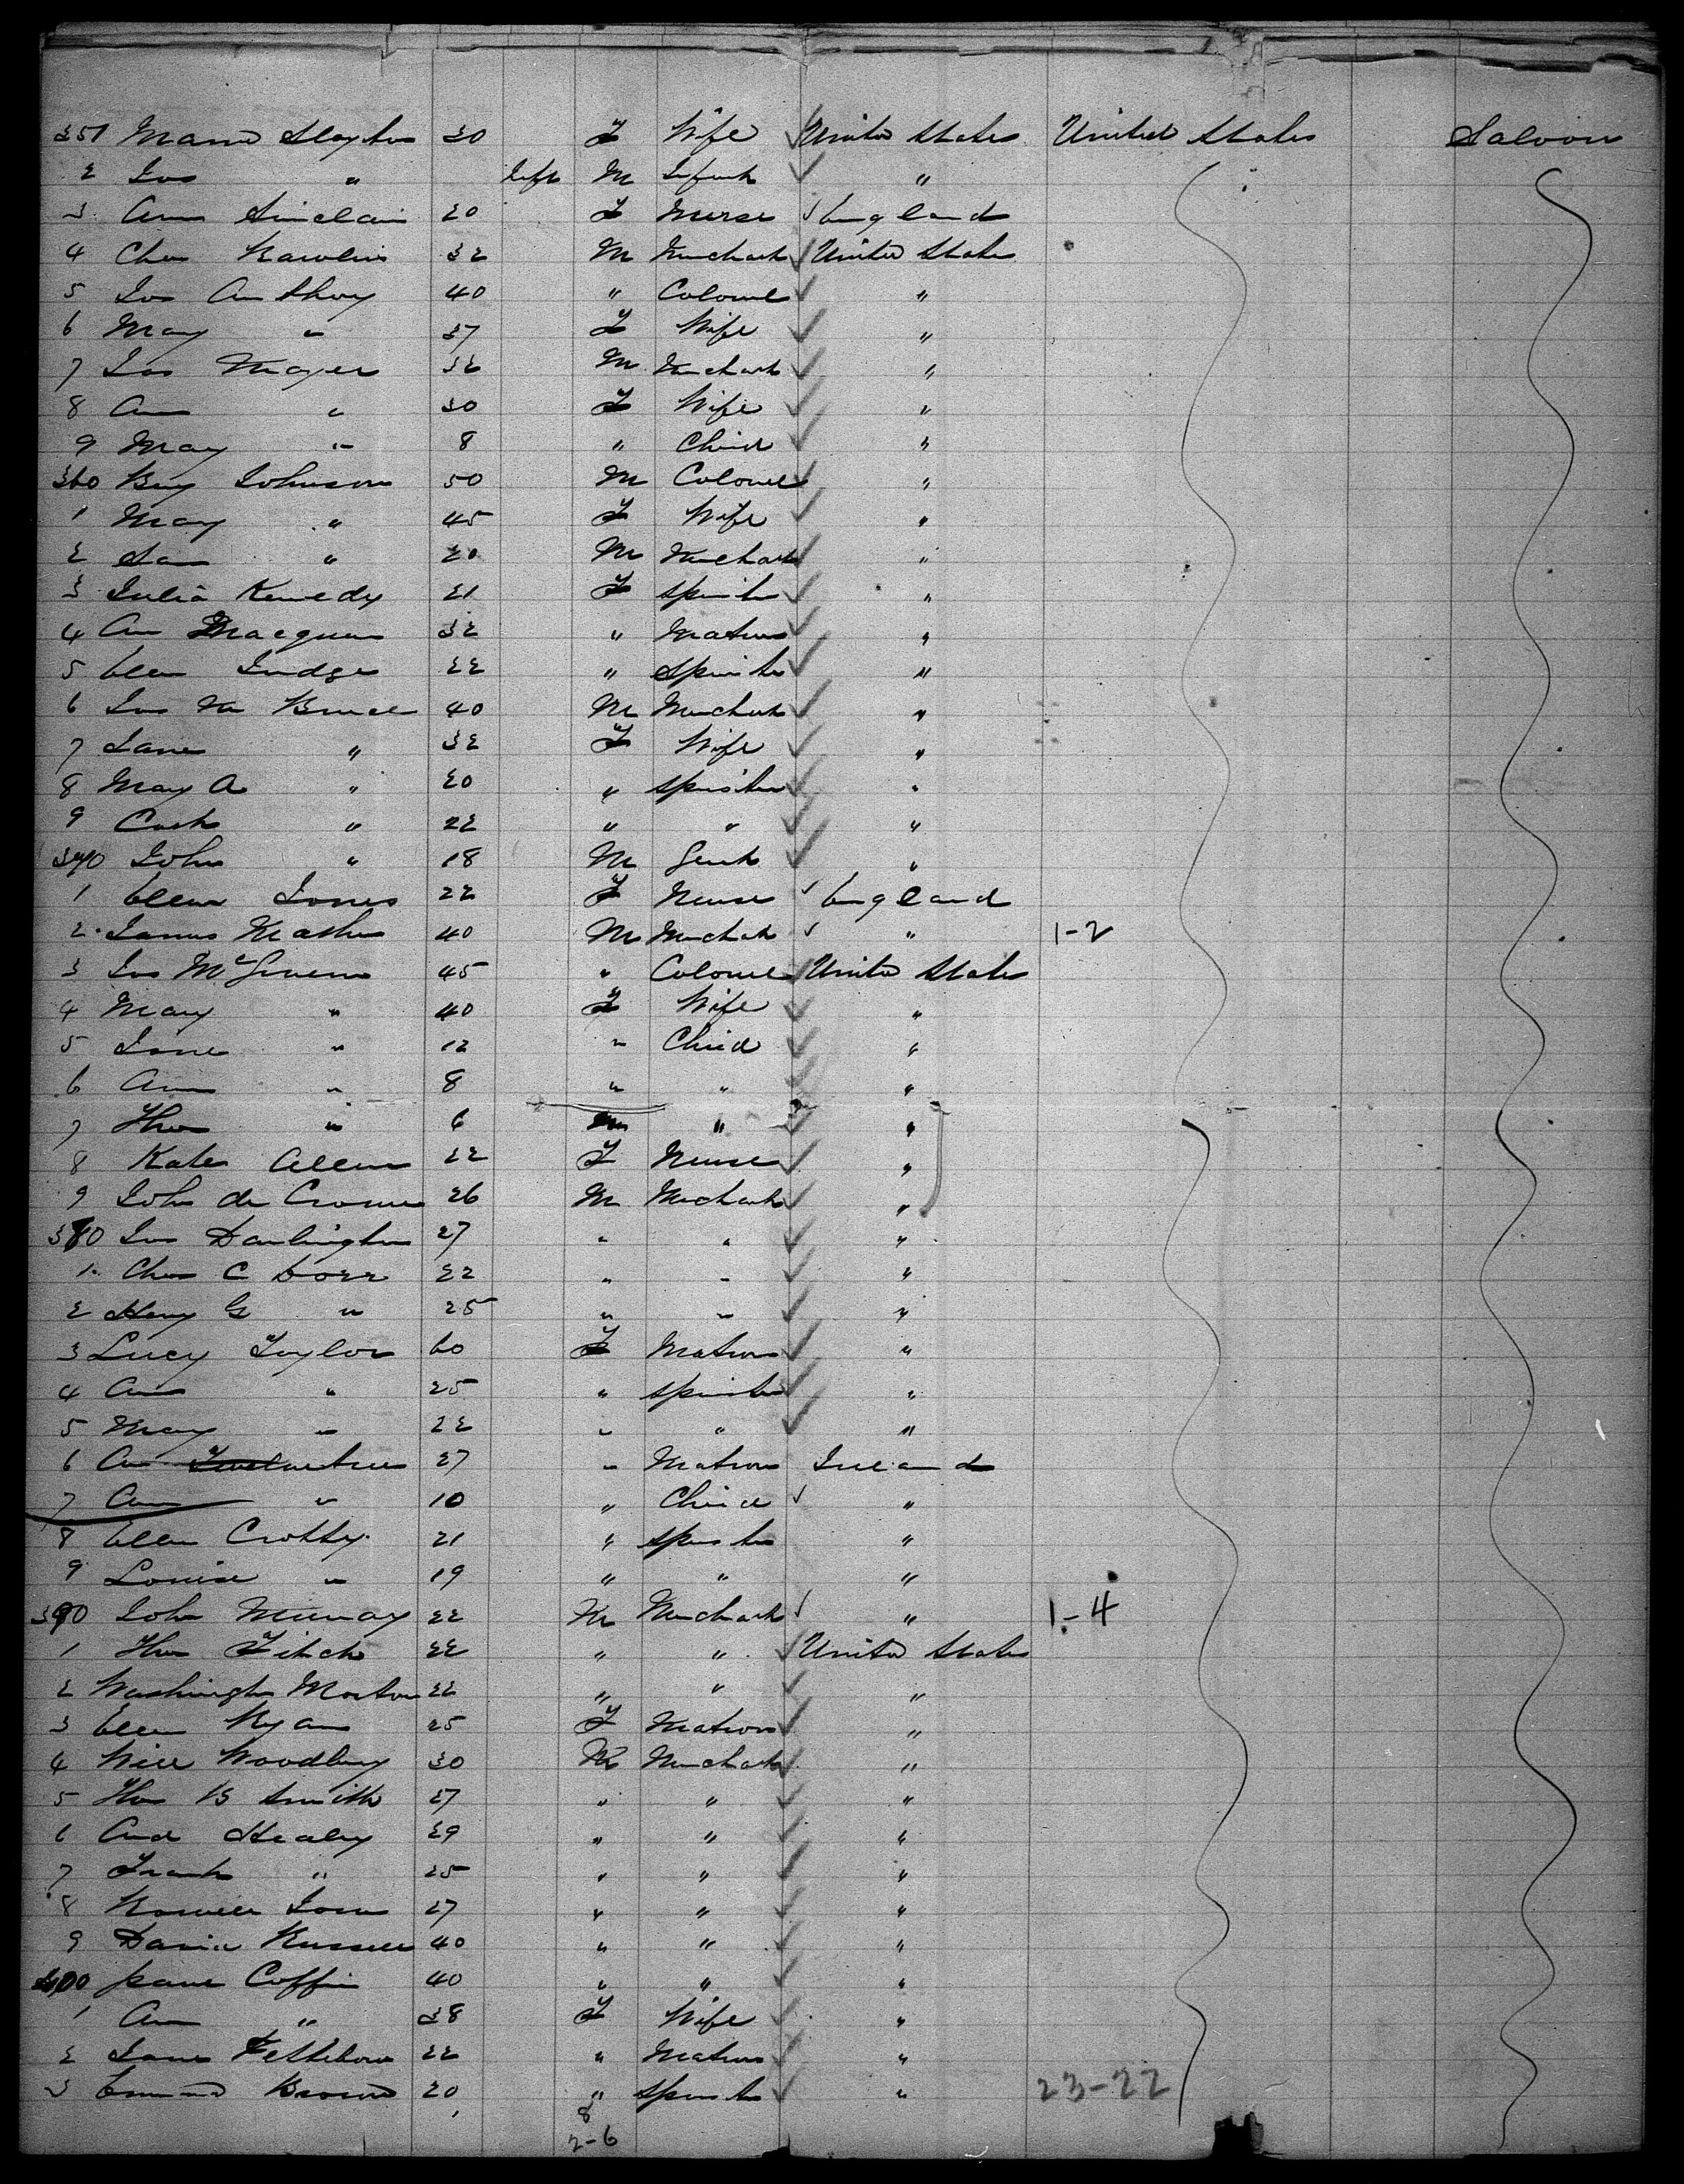 351 Slayton 30 F Wife United States United States Saloon
2 Jas " Inft M Infant "
3 Ann Sinclair 20 F Nurse England
4 Chas Rawlins 32 M Merchant United States
5 Jas Anthony 40 " Colonel "
6 Mary " 37 F Wife "
7 Jas Mayer 36 M Merchant "
8 Ann " 30 F Wife "
9 Mary " 8 " Child "
360 Benj Johnson 50 M Colonel "
1 Mary " 45 F Wife "
2 Sam " 20 M Merchant "
3 Julia Kennedy 21 F Spinster "
4 Ann 32 " Matron "
5 Ellen Judge 22 " Spinster "
6 Jas M Bruce 40 M Merchant "
7 Jane " 32 F Wife "
8 Mary A " 20 " Spinster "
9 Cath " 22 " " "
370 John " 18 M Gent "
1 Ellen Jones 22 F Nurse England
2 James 40 M Merchant " 1-2
3 Jas 45 " Colonel United States
4 Mary " 40 F Wife "
5 Jane " 12 " Child "
6 Ann " 8 " " "
7 Thos " 6 M " "
8 Kate Allen 22 F Nurse "
9 John de 26 M Merchant "
380 Jas Darlington 27 " " "
1 Chas C 22 " " "
2 Henry G " 25 " " "
3 Lucy Taylor 60 F Matron "
4 Ann " 25 " Spinster "
5 Mary " 22 " " "
6 Ann 27 " Matron Ireland
7 Ann " 10 " Child "
8 Ellen Crotty 21 " Spinster "
9 Louise " 19 " " "
390 John Murray 22 M Merchant " 1-4
1 Thos Fitch 22 " " United States
2 Washington Morton 22 " " "
3 Ellen Ryan 25 F Matron "
4 Will Woodbury 30 M Merchant "
5 Thos B Smith 27 " " "
6 And Healey 29 " " "
7 Frank " 25 " " "
8 27 " " "
9 David Russell 40 " " "
400 Coffin 40 " " "
1 Ann " 38 F Wife "
2 Jane 22 " Matron "
3 Emma Brown 20 " Spinster " 23-22
8
2-6